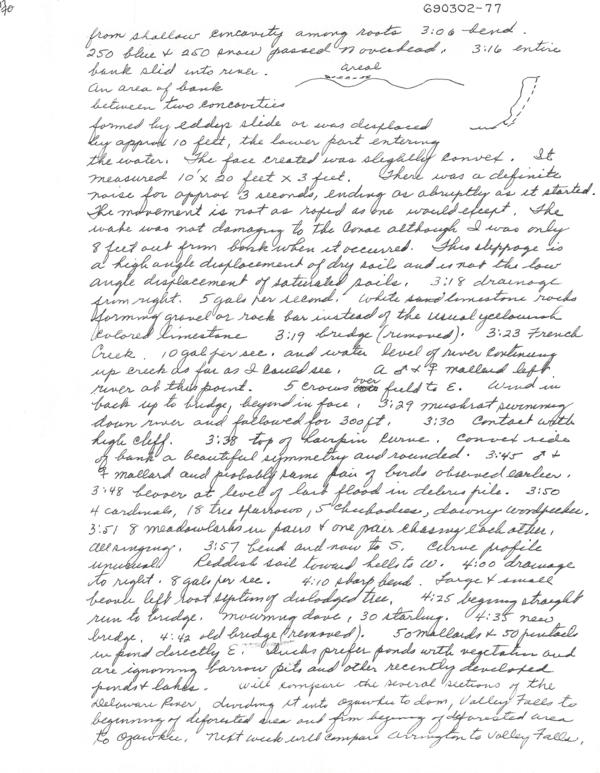 70
690302-77
from shallow concavity among roots 3:06 bend.
250 blue & 250 snow passed N overhead. 3:16 entire
bank slid into river. areal
An area of bank
between two concavities
formed by eddys slide or was displaced
by approx 10 feet, the lower part entering
the water. The face created was slightly convex. It
measured 10 x 20 feet x 3 feet. There was a definite
noise for approx 3 seconds, ending as abruptly as it started.
The movement is not as rapid as one would expect. The
wake was not damaging to the canoe although I was only
8 feet out from bank when it occurred. This slippage is
a high angle displacement of dry soils and is not the low
angle displacement of saturated soils. 3:18 drainage
from right. 5 gals per second. White sand limestone rocks
forming gravel or rock bar instead of the usual yellowish
colored limestone 3:19 bridge (removed). 3:23 French
Creek. 10 gal per sec. and water level of river continuing
up creek as far as I could see. A ♂ & ♀ mallard left
river at this point. 5 crows over field to E. Wind in
back up to bridge, beyond in face. 3:29 muskrat swimming
down river and followed for 300 ft. 3:30 Contact with
high cliff. 3:38 top of hairpin curve. Convex side
of bank a beautiful symmetry and rounded. 3:45 ♂ &
♀ mallard and probably same pair of birds observed earlier.
3:48 beaver at level of last flood in debris pile. 3:50
4 cardinals, 18 tree sparrows, 5 chickadees, downy woodpecker.
3:51 8 meadowlarks in pairs & one pair chasing each other,
all singing. 3:57 bend and now to S. Curve profile
unusual Reddish soil toward hills to W. 4:00 drainage
to right. 8 gals per sec. 4:10 sharp bend. Large & small
beaver left root system of dislodged tree. 4:25 begining straight
run to bridge. mourning dove, 30 starling. 4:35 new
bridge. 4:42 old bridge (removed). 50 mallards & 50 pintails
in pond directly E. Ducks prefer ponds with vegetation and
are ignoring barrow pits and other recently developed
ponds & lakes. Will compare the several sections of the
Delaware River, dividing it into Ozawkie to dam, Valley Falls to
beginning of deforested area and from begining of deforested area
to Ozawkie. Next week will compare Arrington to Valley Falls.